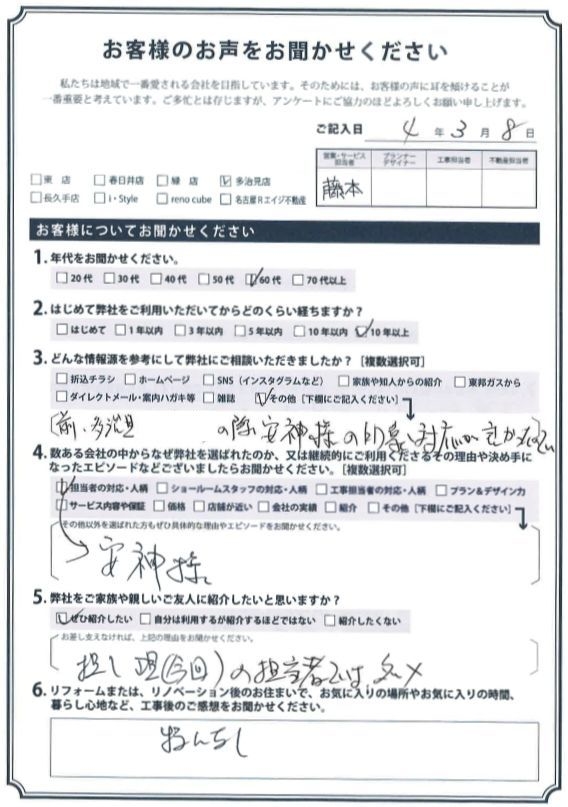 お客様のお声をお聞かせください
私たちは地域で一番愛される会社を目指しています。そのためには、お客様の声に耳を傾けることが
一番重要と考えています。ご多忙とは存じますが、アンケートにご協力のほどよろしくお願い申し上げます。
ご記入日 4 年 3 月 8 日
営業・サービス担当者 プランナーデザイナー 工事担当者 不動産担当者
藤本
□東 店 □春日井店 □緑 店 ☑多治見店
□長久手店 □i・Style □reno cube □名古屋Rエイジ不動産
お客様についてお聞かせください
1. 年代をお聞かせください。
□20代 □30代 □40代 □50代 ☑60代 □70代以上
2. はじめて弊社をご利用いただいてからどのくらい経ちますか？
□はじめて □1年以内 □3年以内 □5年以内 □10年以内 ☑10年以上
3. どんな情報源を参考にして弊社にご相談いただきましたか？［複数選択可］
□折込チラシ □ホームページ □SNS（インスタグラムなど） □家族や知人からの紹介 □東邦ガスから
□ダイレクトメール・案内ハガキ等 □雑誌 ☑その他［下欄にご記入ください］
前、多治見 の際、安神様の印象、対応が
4. 数ある会社の中からなぜ弊社を選ばれたのか、又は継続的にご利用くださるその理由や決め手に
なったエピソードなどございましたらお聞かせください。［複数選択可］
☑担当者の対応・人柄 □ショールームスタッフの対応・人柄 □工事担当者の対応・人柄 □プラン&デザイン力
□サービス内容や保証 □価格 □店舗が近い □会社の実績 □紹介 □その他［下欄にご記入ください］
その他以外を選ばれた方もぜひ具体的な理由やエピソードをお聞かせください。
安神様
5. 弊社をご家族や親しいご友人に紹介したいと思いますか？
☑ぜひ紹介したい □自分は利用するが紹介するほどではない □紹介したくない
お差し支えなければ、上記の理由をお聞かせください。
担し 現(今回)の担当者では ダメ
6. リフォームまたは、リノベーション後のお住まいで、お気に入りの場所やお気に入りの時間、
暮らし心地など、工事後のご感想をお聞かせください。